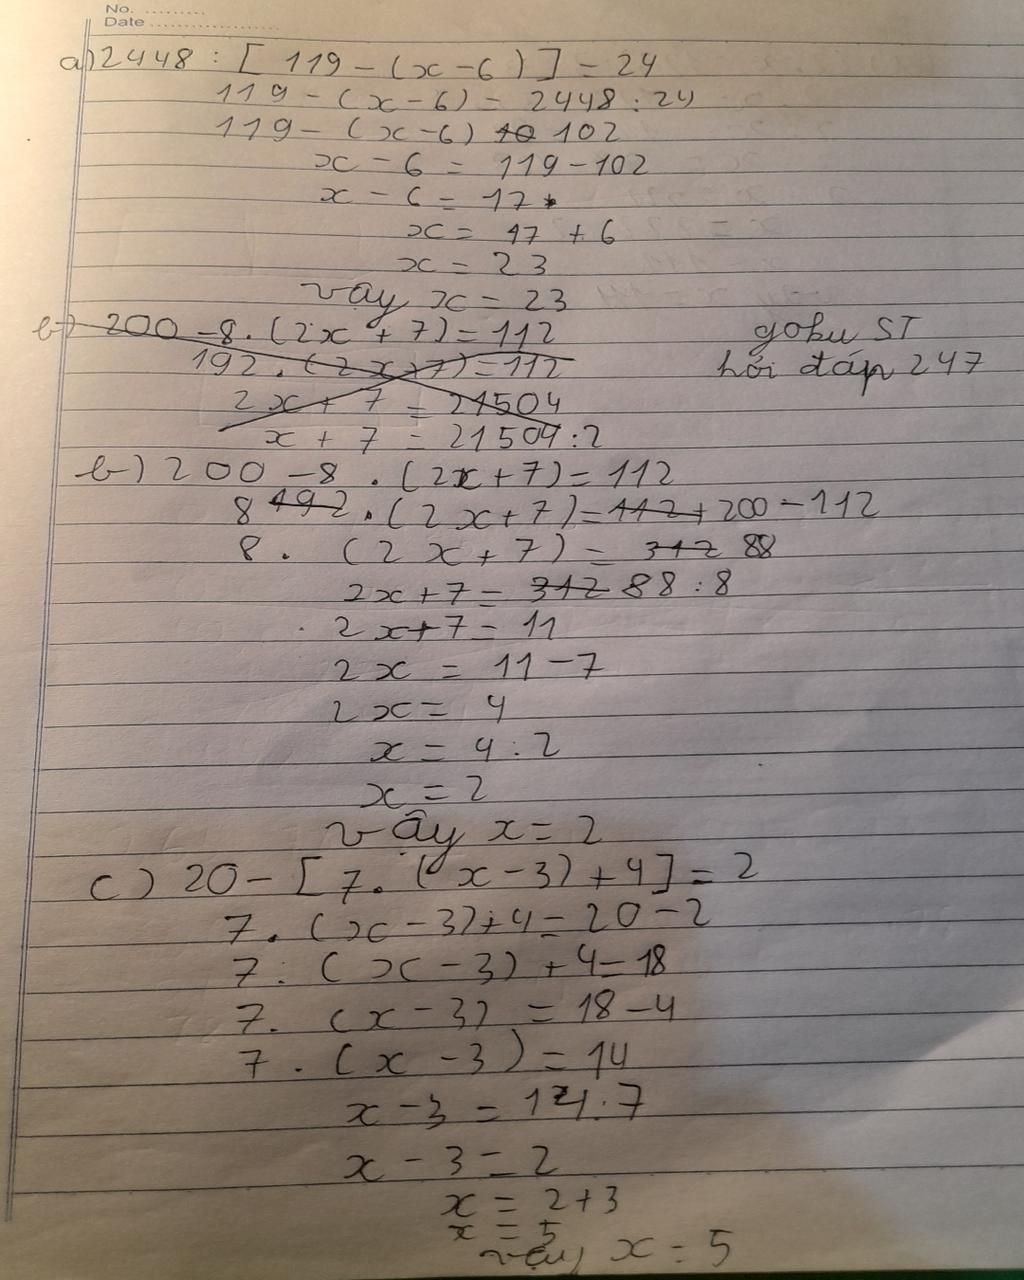 No. .........
Date .....................
a) 2448 : [ 119 - (x - 6 ) ] = 24
119 - (x - 6) = 2448 : 24
119 - (x - 6) 102
x - 6 = 119 - 102
x - 6 = 17
x = 17 + 6
x = 23
vậy x = 23
b) 200 - 8 . (2x + 7) = 112
goku ST
192 . (2x + 7) = 112
hỏi đáp 247
2x + 7 = 21504
x + 7 = 21504 : 2
b) 200 - 8 . (2x + 7) = 112
8 192 . (2x + 7) = 112 + 200 - 112
8 . (2x + 7) = 312 88
2x + 7 = 312 88 : 8
2x + 7 = 11
2x = 11 - 7
2x = 4
x = 4 : 2
x = 2
vậy x = 2
c) 20 - [ 7 . (x - 3) + 4 ] = 2
7 . (x - 3) + 4 = 20 - 2
7 . (x - 3) + 4 = 18
7 . (x - 3) = 18 - 4
7 . (x - 3) = 14
x - 3 = 14 : 7
x - 3 = 2
x = 2 + 3
x = 5
vậy x = 5